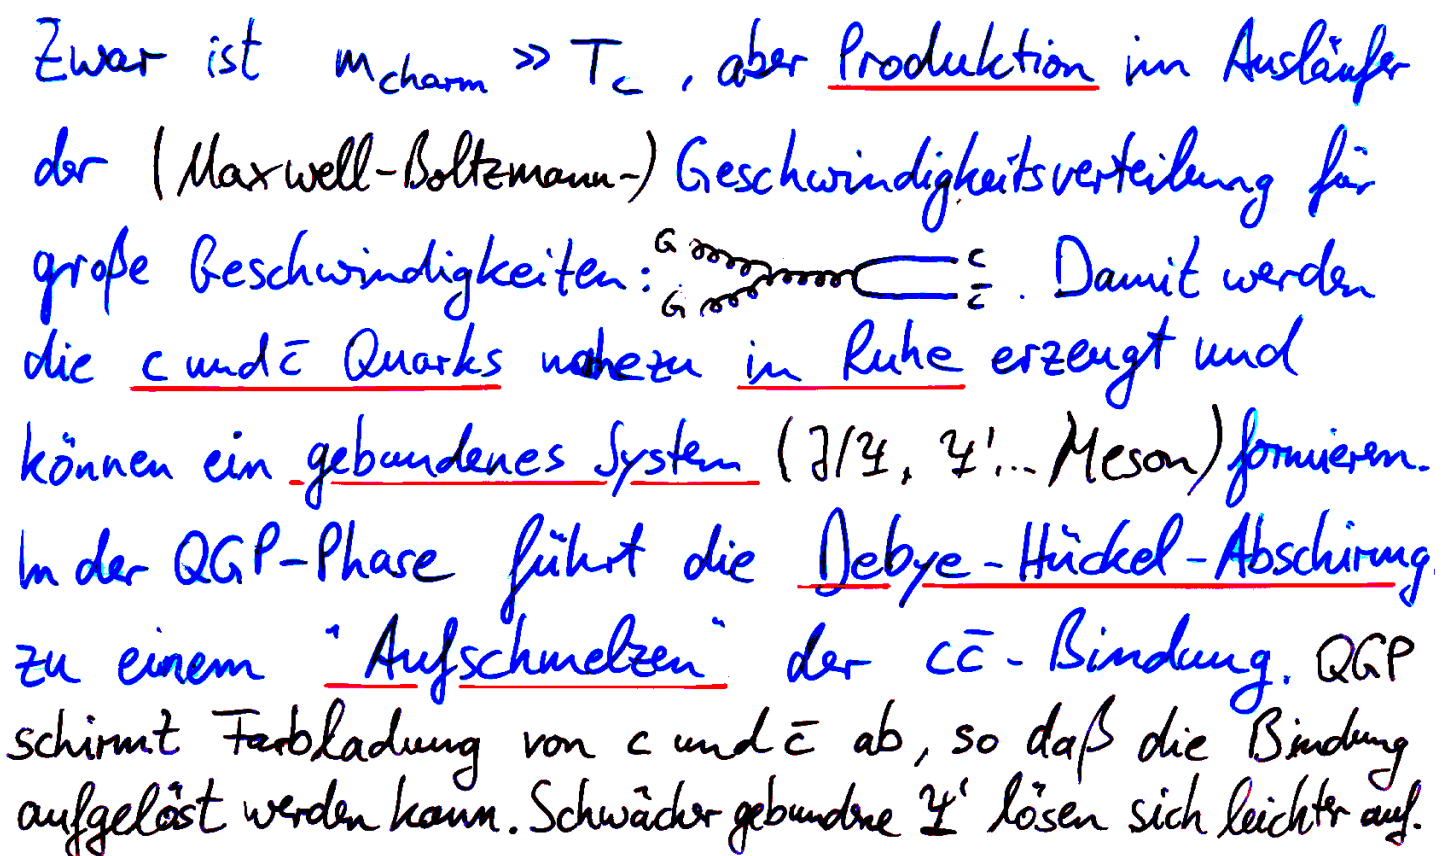 Zwar ist m_charm >> T_c, aber Produktion im Ausläufer
der (Maxwell-Boltzmann-) Geschwindigkeitsverteilung für
große Geschwindigkeiten: G G c c̄. Damit werden
die c und c̄ Quarks nahezu in Ruhe erzeugt und
können ein gebundenes System (J/Ψ, Ψ'... Meson) formieren.
In der QGP-Phase führt die Debye-Hückel-Abschirmung
zu einem "Aufschmelzen" der cc̄-Bindung. QGP
schirmt Farbladung von c und c̄ ab, so daß die Bindung
aufgelöst werden kann. Schwächer gebundene Ψ' lösen sich leichter auf.